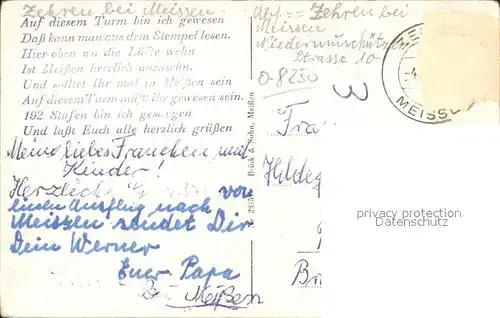 Zehren bei Meissen
Auf diesem Turm bin ich gewesen
Daß kann man aus dem Stempel lesen.
Hier oben wo die Lüfte wehn
Ist Meißen herrlich anzusehn.
Und solltet Ihr mal in Meißen sein
Auf diesem Turm müßt Ihr gewesen sein.
192 Stufen bin ich gestiegen
Und laßt Euch alle herzlich grüßen
Meine liebes Frauchen und
Kinder!
Herzliche von
einen Ausflug nach
Meissen sendet Dir
Dein Werner
Euer Papa
Meißen
Brück & Sohn, Meißen
Abs == Zehren bei
Meissen
Strasse 10
0-8250
W
MEISSE
Fra
Hildeg
privacy protection
watermark
B